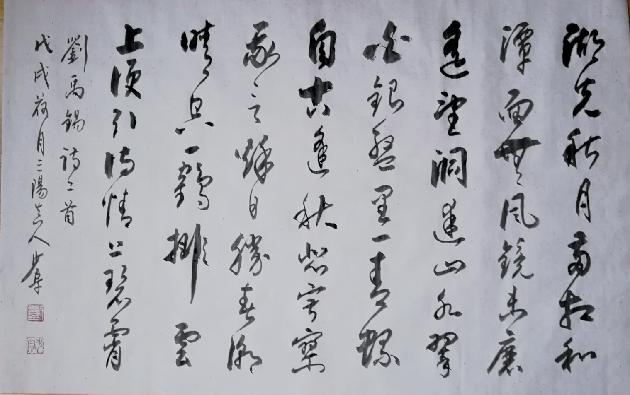 湖光秋月两相和
潭面無風鏡未磨
遥望洞庭山水翠
白銀盤里一青螺
自古逢秋悲寂寥
我言秋日勝春潮
晴空一鶴排雲
上便引詩情到碧霄
劉禹錫詩二首
戊戌荷月三陽真人